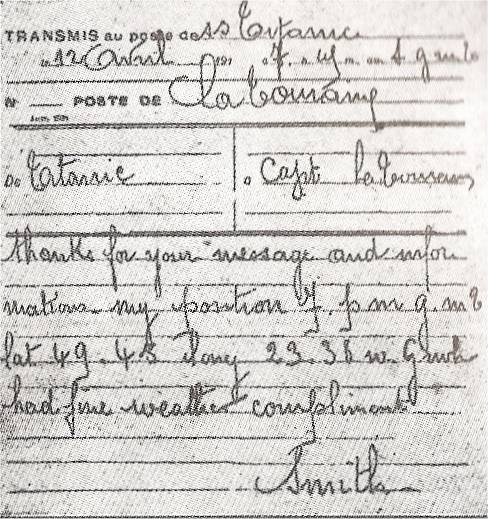 TRANSMIS au poste de SS Titanic
12 Avril 7. gmt
N° POSTE DE La Touraine
De Titanic
a Capt La Touraine
thanks for your message and infor
mations my position 7. p m g.m t
lat 49.45 long 23.38 w. Gwh
had fine weather compliments
Smith